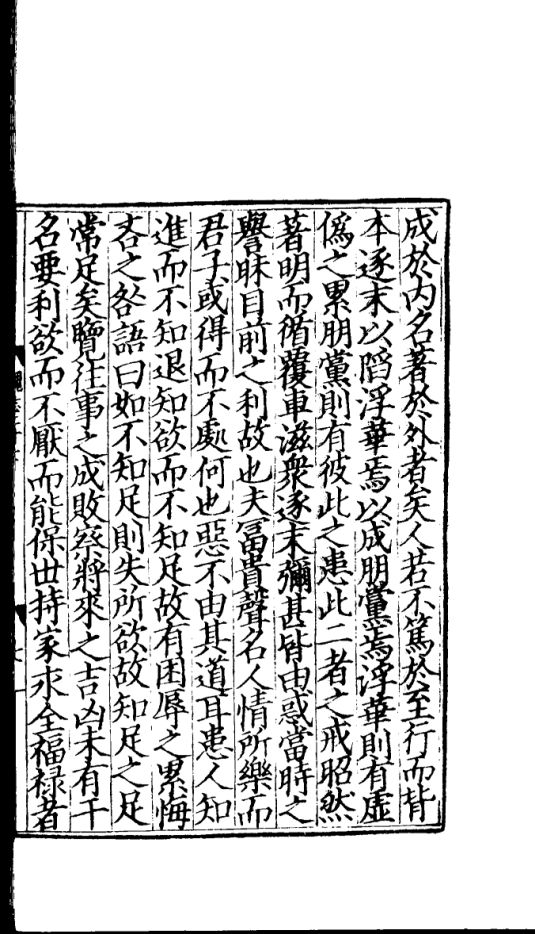 成於內名著於外者矣人若不篤於至行而背
本逐末以䧟浮華焉以成朋黨焉浮華則有虛
僞之累朋黨則有彼此之患此二者之戒昭然
著明而循覆車滋衆逐末彌甚皆由惑當時之
譽昧目前之利故也夫富貴聲名人情所樂而
君子或得而不處何也惡不由其道耳患人知
進而不知退知欲而不知足故有困辱之累悔
吝之咎語曰如不知足則失所欲故知足之足
常足矣覽往事之成敗察將來之吉凶未有干
名要利欲而不厭而能保世持家永全福祿者